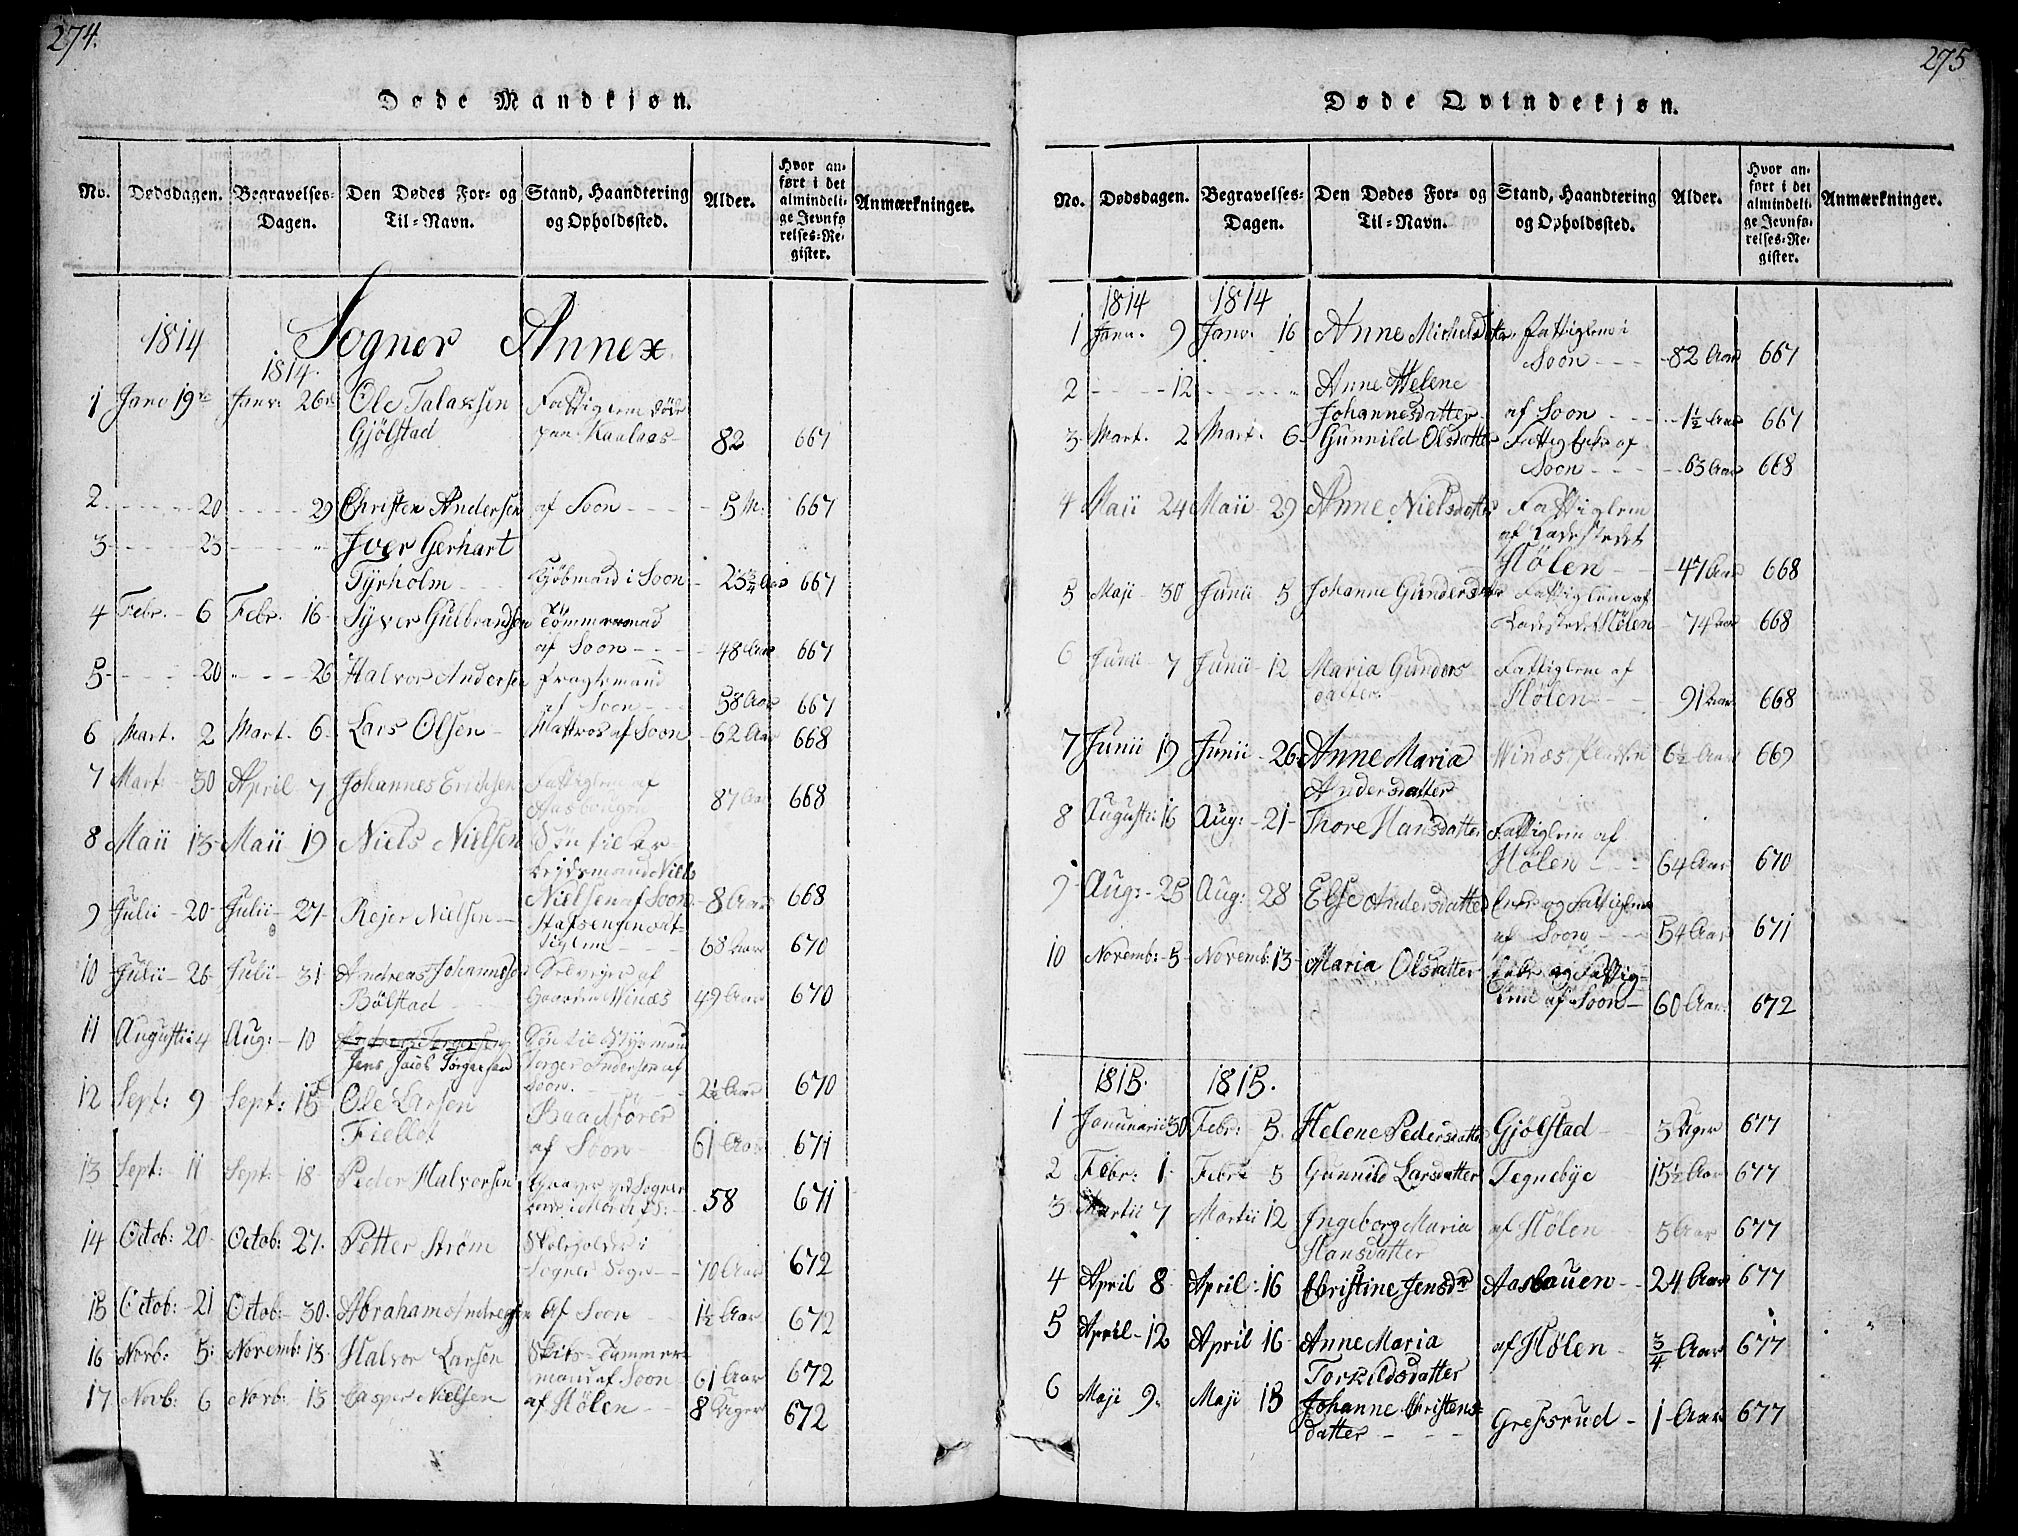 274.
Døde Mandkjøn.
No. Dødsdagen. Begravelses-Dagen. Den Dødes For- og Til-Navn. Stand, Haandtering og Opholdssted. Alder. Hvor anført i det almindelige Jevnførelses-Register. Anmærkninger.
Sogner Annex
1814 1814.
1 Janv 19de Janv: 26de Ole Talaksen Fattiglem døde
Gjølstad paa Kaalaas 82 667
2 20 29 Christen Andersen af Soon 5 M. 667
3 23 " Jver Gerhart
Tyrholm Kjøbmand i Soon 23 3/4 Aar 667
4 Febr. 6 Febr. 16 Syver Gulbrandsen Tømmermand
af Soon 48 Aar 667
5 20 26 Halvor Andersen Fragtemand
af Soon 58 Aar 667
6 Mart. 2 Mart. 6 Lars Olsen Mattros af Soon 62 Aar 668
7 Mart 30 April 7 Johannes Erichsen Fattiglem af
87 Aar 668
8 Maii 13 Maii 19 Niels Nielsen Søn til
Niels
Nielsen af Soon 8 Aar 668
9 Julii 20 Julii 27 Rejer Nielsen
68 Aar 670
10 Julii 26 Julii 31 Andreas Johannesen Selvejer af
Bølstad Gaarden Winæs 49 Aar 670
11 Augusti 4 Aug: 10
Jens Jacob Torgersen Søn til Styrmand
Torger Andersen af
Soon. 2 1/2 Aar 670
12 Sept: 9 Sept: 15 Ole Larsen Baadfører
Fiellot af Soon 61 Aar 671
13 Sept: 11 Sept: 18 Peder Halvorsen Graver ved Sogner
58 671
14 Octob: 20 Octob: 27. Petter Strøm Skoleholder i
Sogner Sogn 70 Aar 672
15 Octob: 21 Octob: 30. Abraham Andreasen af Soon 1½ Aar 672
16 Novb: 5 Novemb: 13 Halvor Larsen Skibs-Tømmer-
mand af Soon 61 Aar 672
17 Novb: 6 Novb: 13 Casper Nielsen af Hølen 8 Uger 672
275
Døde Qvindekjøn.
No. Dødsdagen. Begravelses-Dagen. Den Dødes For- og Til-Navn. Stand, Haandtering og Opholdssted. Alder. Hvor anført i det almindelige Jevnførelses-Register. Anmærkninger.
1814 1814
1 Janv. 9 Janv. 16 Anne Michelsdatter Fattiglem i
Soon 82 Aar 667
2 12 " Anne Helene
Johannesdatter af Soon 1½ Aar 667
3 Mart. 2 Mart. 6 Gunnild Olsdatter Fattig Enke af
Soon 63 Aar 668
4 Maii 24 Maii 29 Anne Nielsdatter Fattiglem
af Ladestedet
Hølen 47 Aar 668
5 Maji 30 Junii 5 Johanne Gundersdatter Fattiglem af
Ladestedet Hølen 74 Aar 668
6 Junii 7 Junii 12 Maria Gunders Fattiglem af
datter. Hølen 91 Aar 668
7 Junii 19 Junii 26 Anne Maria Winæs 6½ Aar 669
Andersdatter
8 Augusti: 16 Aug: 21 Thore Hansdatter Fattiglem af
Hølen 64 Aar 670
9 Aug: 25 Aug: 28 Else Andersdatter Enke og Fattiglem
af Soon 54 Aar 671
10 Novemb: 5 Novemb: 13 Maria Olsdatter Enke og Fattig-
lem af Soon 60 Aar. 672
1815. 1815.
1 Januarii 30 Febr: 5. Helene Pedersdatter Gjølstad 3 Uger 677
2 Febr: 1 Febr: 5 Gunnild Larsdatter Tegnebye 15½ Aar 677
3 Martii 7 Martii 12 Ingeborg Maria af Hølen 5 Aar 677
Hansdatter
4 April 8 April: 16 Christine Jensdr Aasbauen 24 Aar 677
5 April 12 April 16 Anne Maria af Hølen 3/4 Aar 677
Torkildsdatter
6 Maji 9. Maji 15 Johanne Christens-
datter Gressrud 1 Aar 677